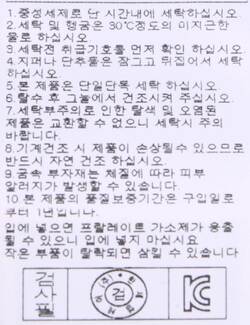 1.중성세제로 단 시간내에 세탁하십시오.
2.세탁 및 헹굼은 30℃정도의 미지근한
물로 하십시오.
3.세탁전 취급기호를 먼저 확인 하십시오.
4.지퍼나 단추등은 잠그고 뒤집어서 세탁
하십시오.
5.본 제품은 단일단독 세탁 하십시오.
6.탈수 후 그늘에서 건조시켜 주십시오.
7.세탁부주의로 인한 탈색 및 오염된
제품은 교환할 수 없으니 세탁시 주의
바랍니다.
8.기계건조 시 제품이 손상될수 있으므로
반드시 자연 건조 하십시오.
9.금속 부자재는 체질에 따라 피부
알러지가 발생할 수 있습니다.
10.본 제품의 품질보증기간은 구입일로
부터 1년입니다.
입에 넣으면 프탈레이트 가소제가 용출
될 수 있으니 입에 넣지 마십시요.
작은 부품이 탈락되면 삼킬 수 있습니다
검
사필
검
KC